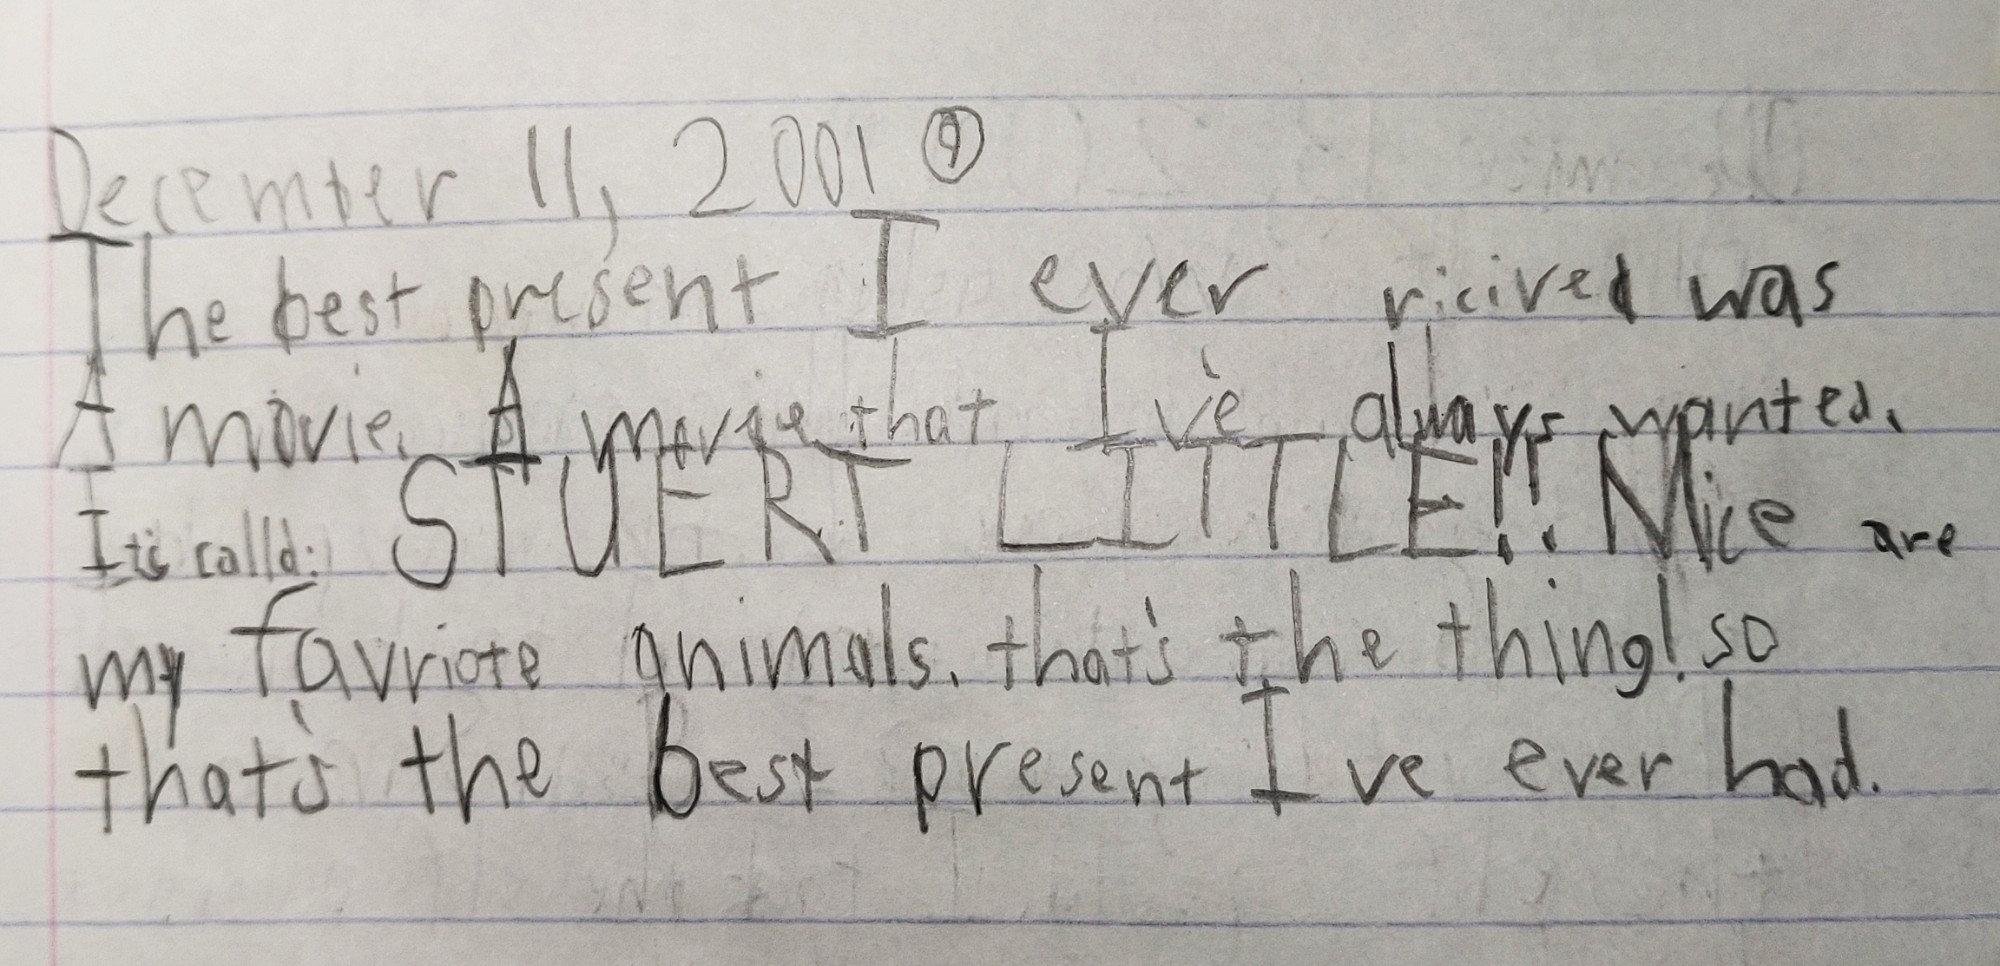 December 11, 2001 ⑨
The best present I ever ricived was
A movie. A movie that I've always wanted.
It's calld: STUERT LITTLE!! Mice are
my favriote animals. that's the thing! so
that's the best present I've ever had.